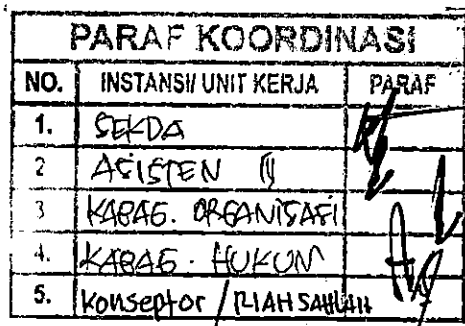 PARAF KOORDINASI
NO. INSTANSI/ UNIT KERJA PARAF
1. SEKDA
2 ASISTEN III
3 KABAG. ORGANISASI
4. KABAG. HUKUM
5. Konseptor / RIAH SAHLAH